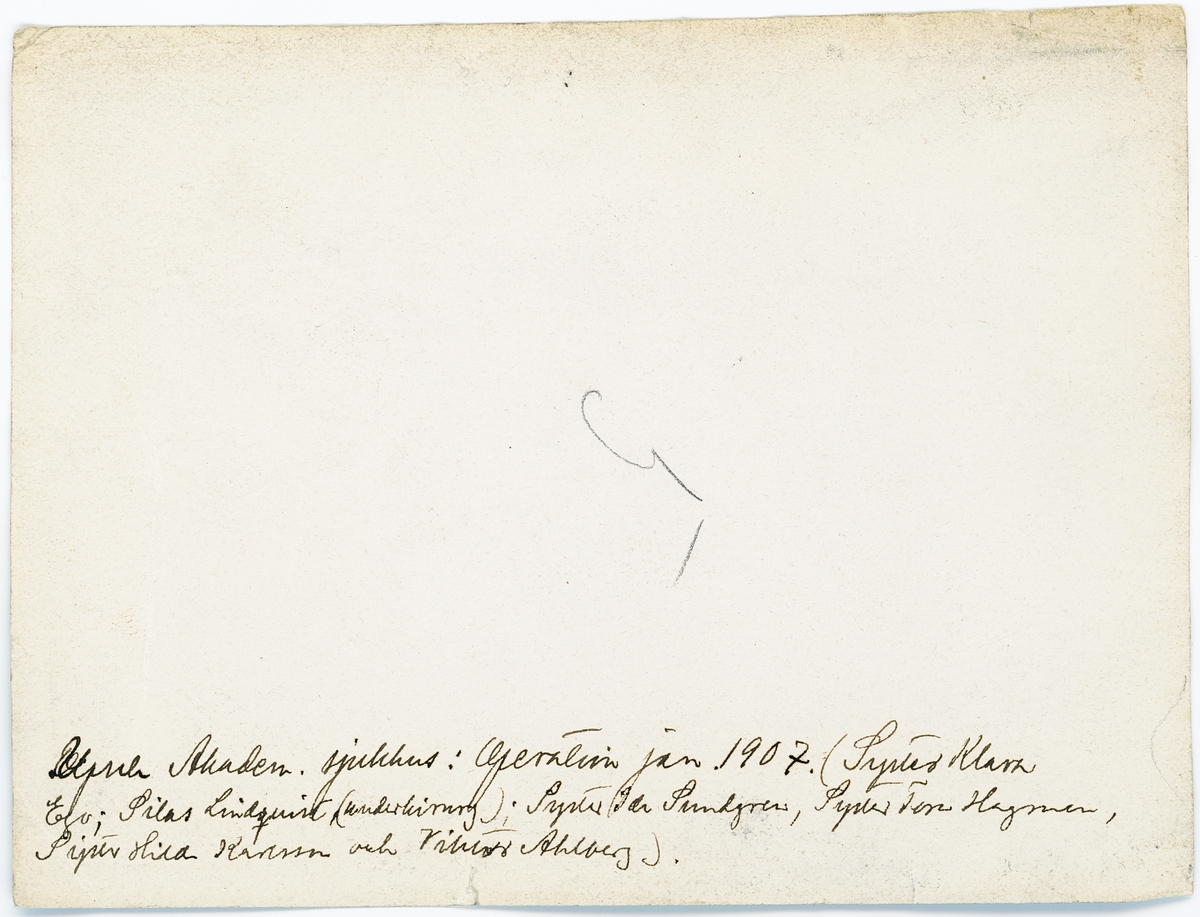 Upsala Akadem. sjukhus: Operation jan. 1907. (Syster Klara
Elv; Silas Lindquist (underkirurg); Syster Ida Sundgren, Syster Tora Hagman,
Syster Hilda Karlsson och Viktor Ahlberg).